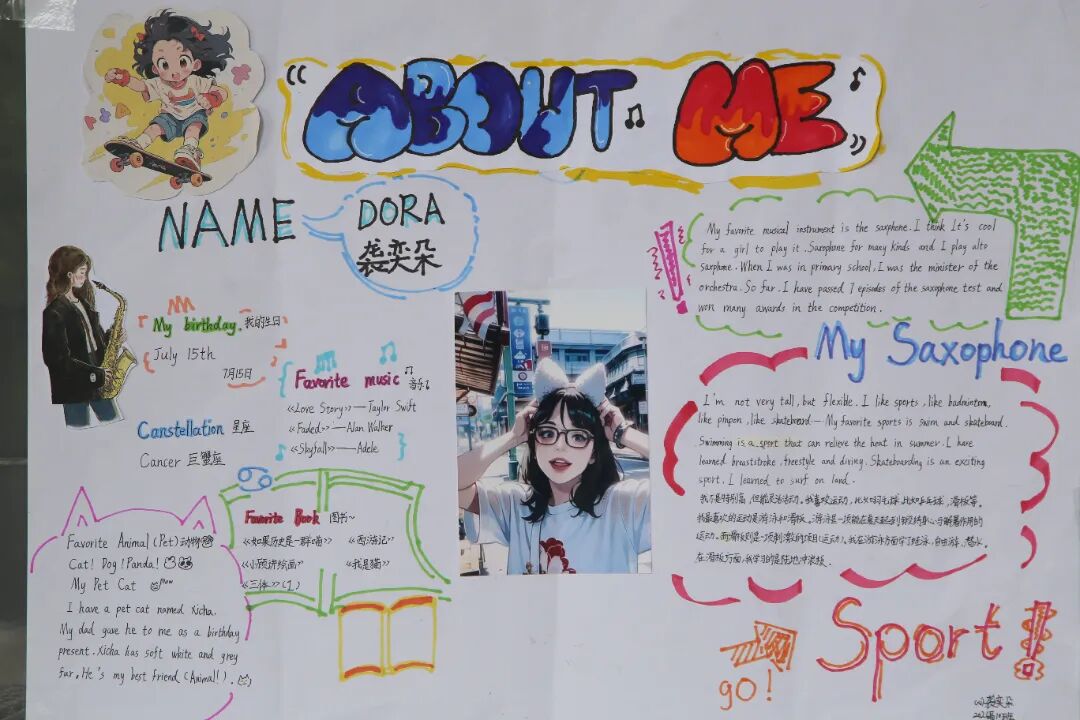 “ ABOUT ME ”
NAME
DORA
袭奕朵
My birthday. 我的生日
July 15th
7月15日
Constellation 星座
Cancer 巨蟹座
Favorite music 音乐
《Love Story》—Taylor Swift
《Faded》—Alan Walker
《Skyfall》—Adele
Favorite Book 图书~
《如果历史是一群喵》 《西游记》
《小顾讲绘画》 《我是猫》
《三体》(1)
Favorite Animal (Pet) 动物
Cat! Dog! Panda!
My Pet Cat
I have a pet cat named Xicha.
My dad gave he to me as a birthday
present. Xicha has soft white and grey
fur. He's my best friend (Animal!).
My favorite musical instrument is the saxphone. I think It's cool
for a girl to play it. Saxophone for maey kinds and I play alto
saxphone. When I was in primary school, I was the minister of the
orchestra. So far, I have passed 7 episodes of the saxophone test and
won many awards in the competition.
My Saxophone
I'm not very tall, but flexible. I like sports, like badminton,
like pinpon, like skateboard— My favorite sports is swim and skateboard.
Swimming is a sport that can relieve the heat in summer. I have
learned breaststroke, freestyle and diving. Skateboarding is an exciting
sport, I learned to surf on land.
我不是特别高，但能灵活活动。我喜欢运动，比如羽毛球，比如乒乓球，滑板等。
我最喜欢的运动是游泳和滑板。游泳是一项能在夏天起到锻炼身心与解暑作用的
运动。而滑板则是一项刺激的项目(运动)。我在游泳方面学了蛙泳，自由泳，潜水。
在滑板方面，我学习的是陆地冲浪板。
Sport!
go!
袭奕朵